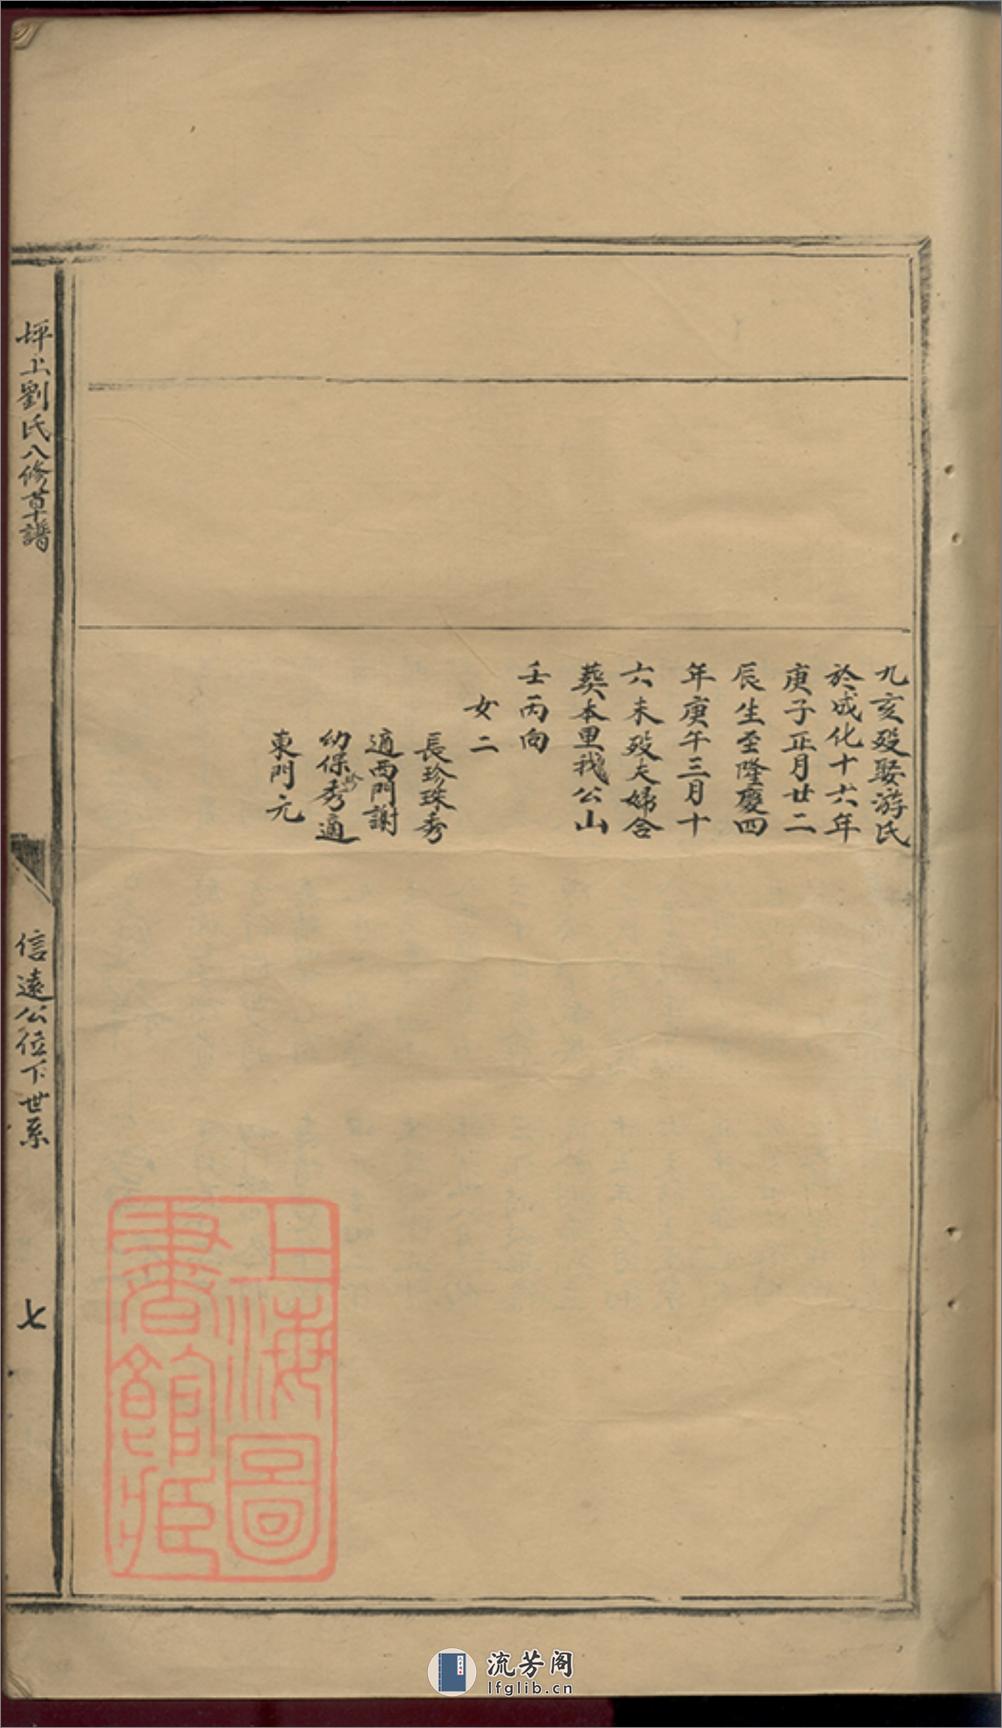 九亥歿娶游氏
於成化十六年
庚子正月廿二
辰生至隆慶四
年庚午三月十
六未歿夫婦合
葬本里我公山
壬丙向
女二
長珍珠秀
適西門謝
幼保珍秀適
東門元
坪上劉氏八修草譜
信遠公位下世系
七
上海圖
書館藏
流芳阁
lfglib.cn